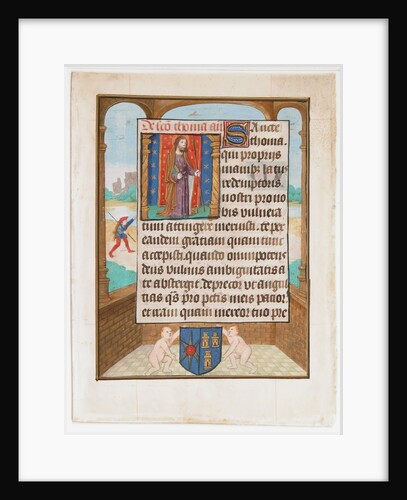 De sco thoma an
Sancte
thoma
qui proprijs
manibꝫ latus
redemptoris
nostri pro no
bis vulnera
tum attingere meruisti. te per
eandem gratiam quam tunc
accepisti, quando omnipotens
deus vulnus ambiguitatis a
te abstergit. deprecor ut angus
tias qs pro pctis meis patior
et iram quam mereor tuo pre